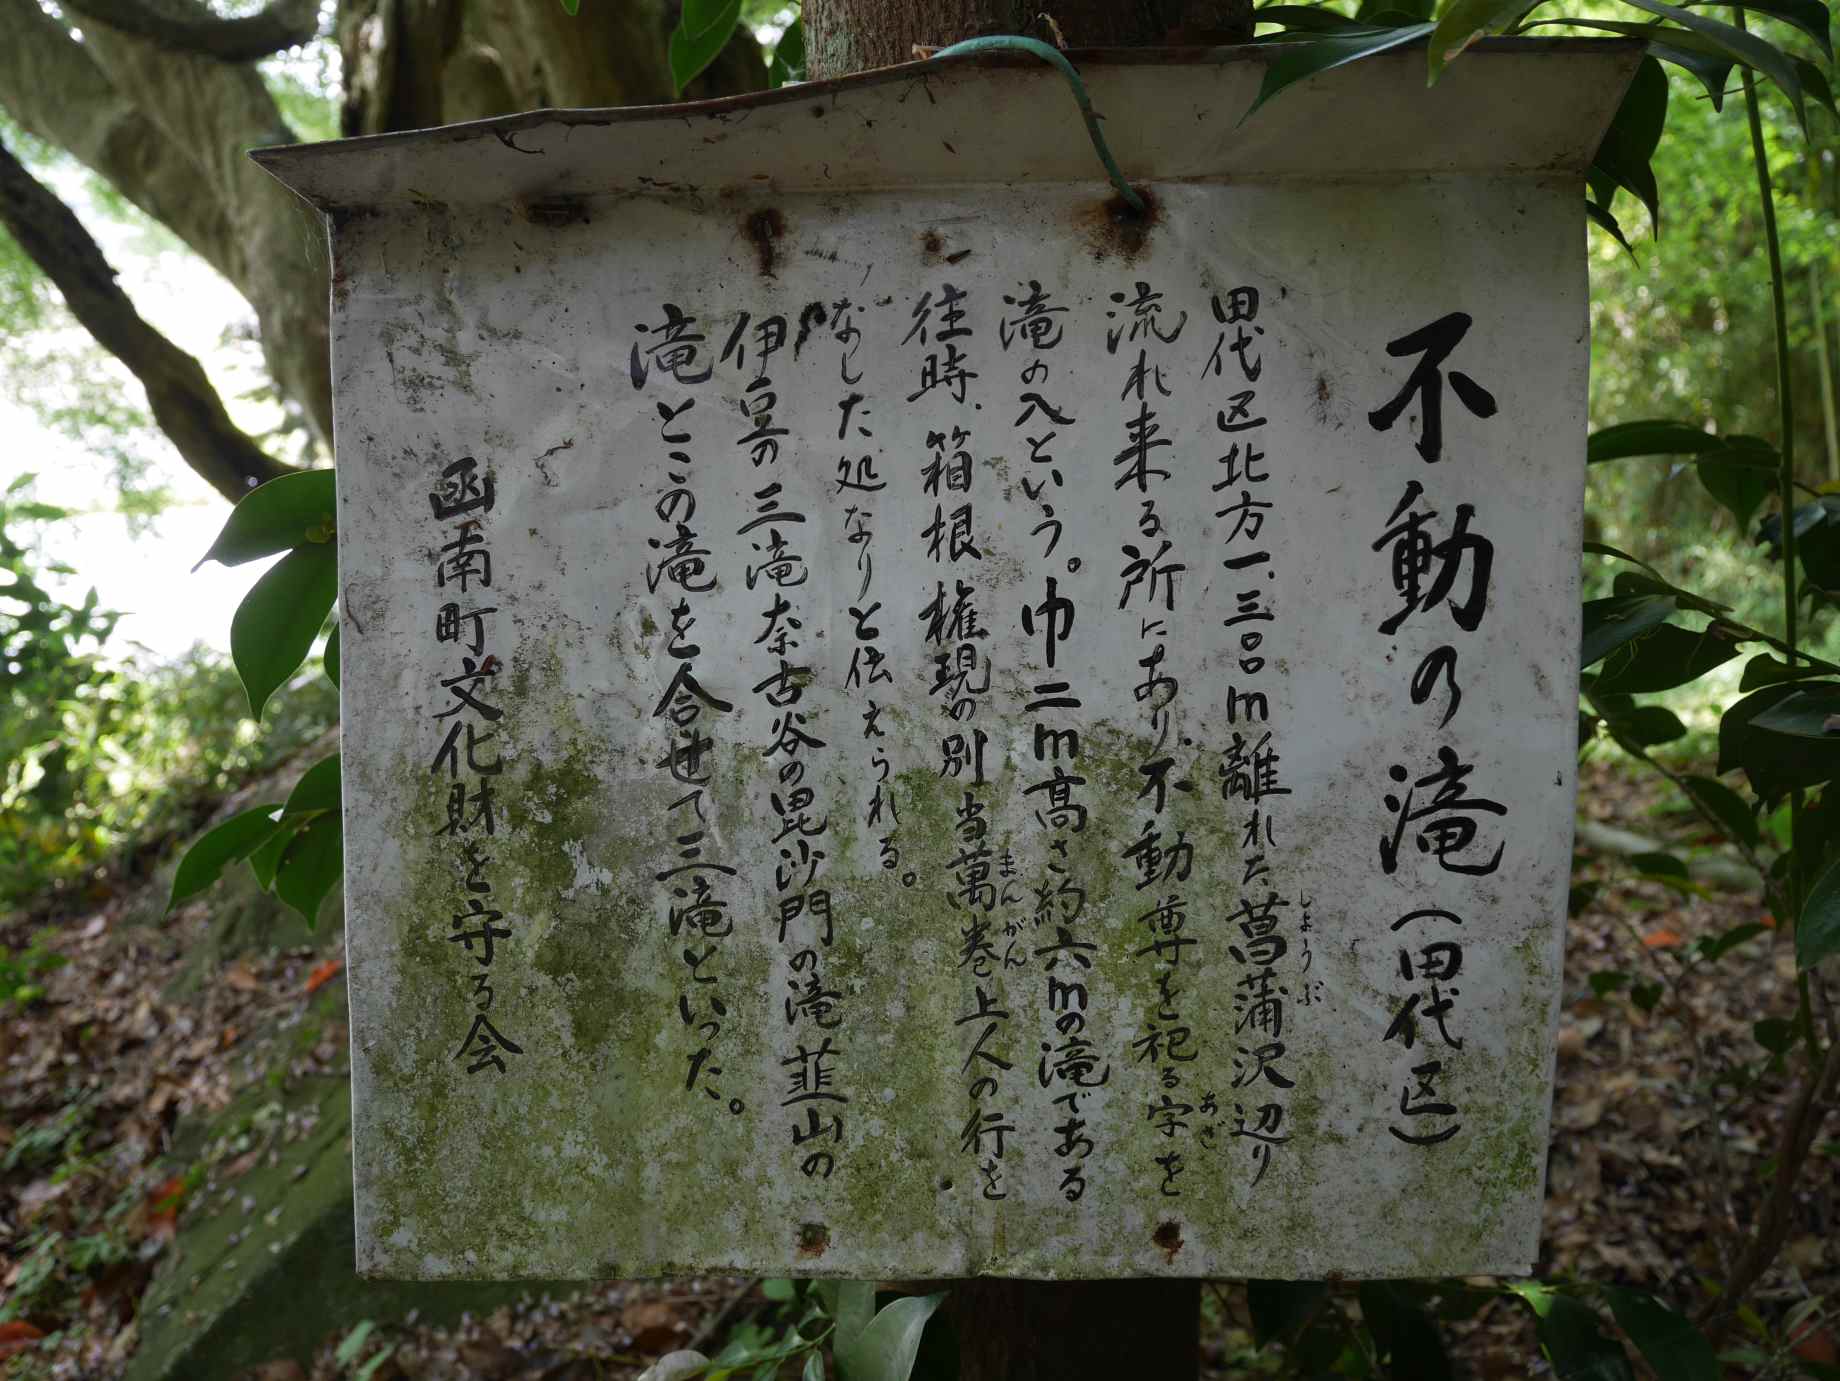 不動の滝(田代区)
田代区北方一、三〇〇m離れた菖蒲沢辺り
しょうぶ
流れ来る所にあり、不動尊を祀る字を
あざ
滝の入という。巾二m高さ約六mの滝である
往時、箱根権現の別当萬巻上人の行を
まんがん
なした処なりと伝えられる。
伊豆の三滝奈古谷の毘沙門の滝韮山の
滝とこの滝を合せて三滝といった。
函南町文化財を守る会